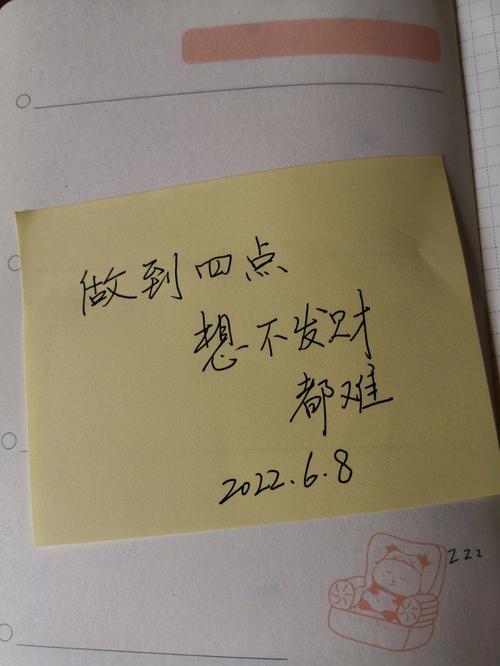 做到四点
想不发财
都难
2022.6.8
zzz